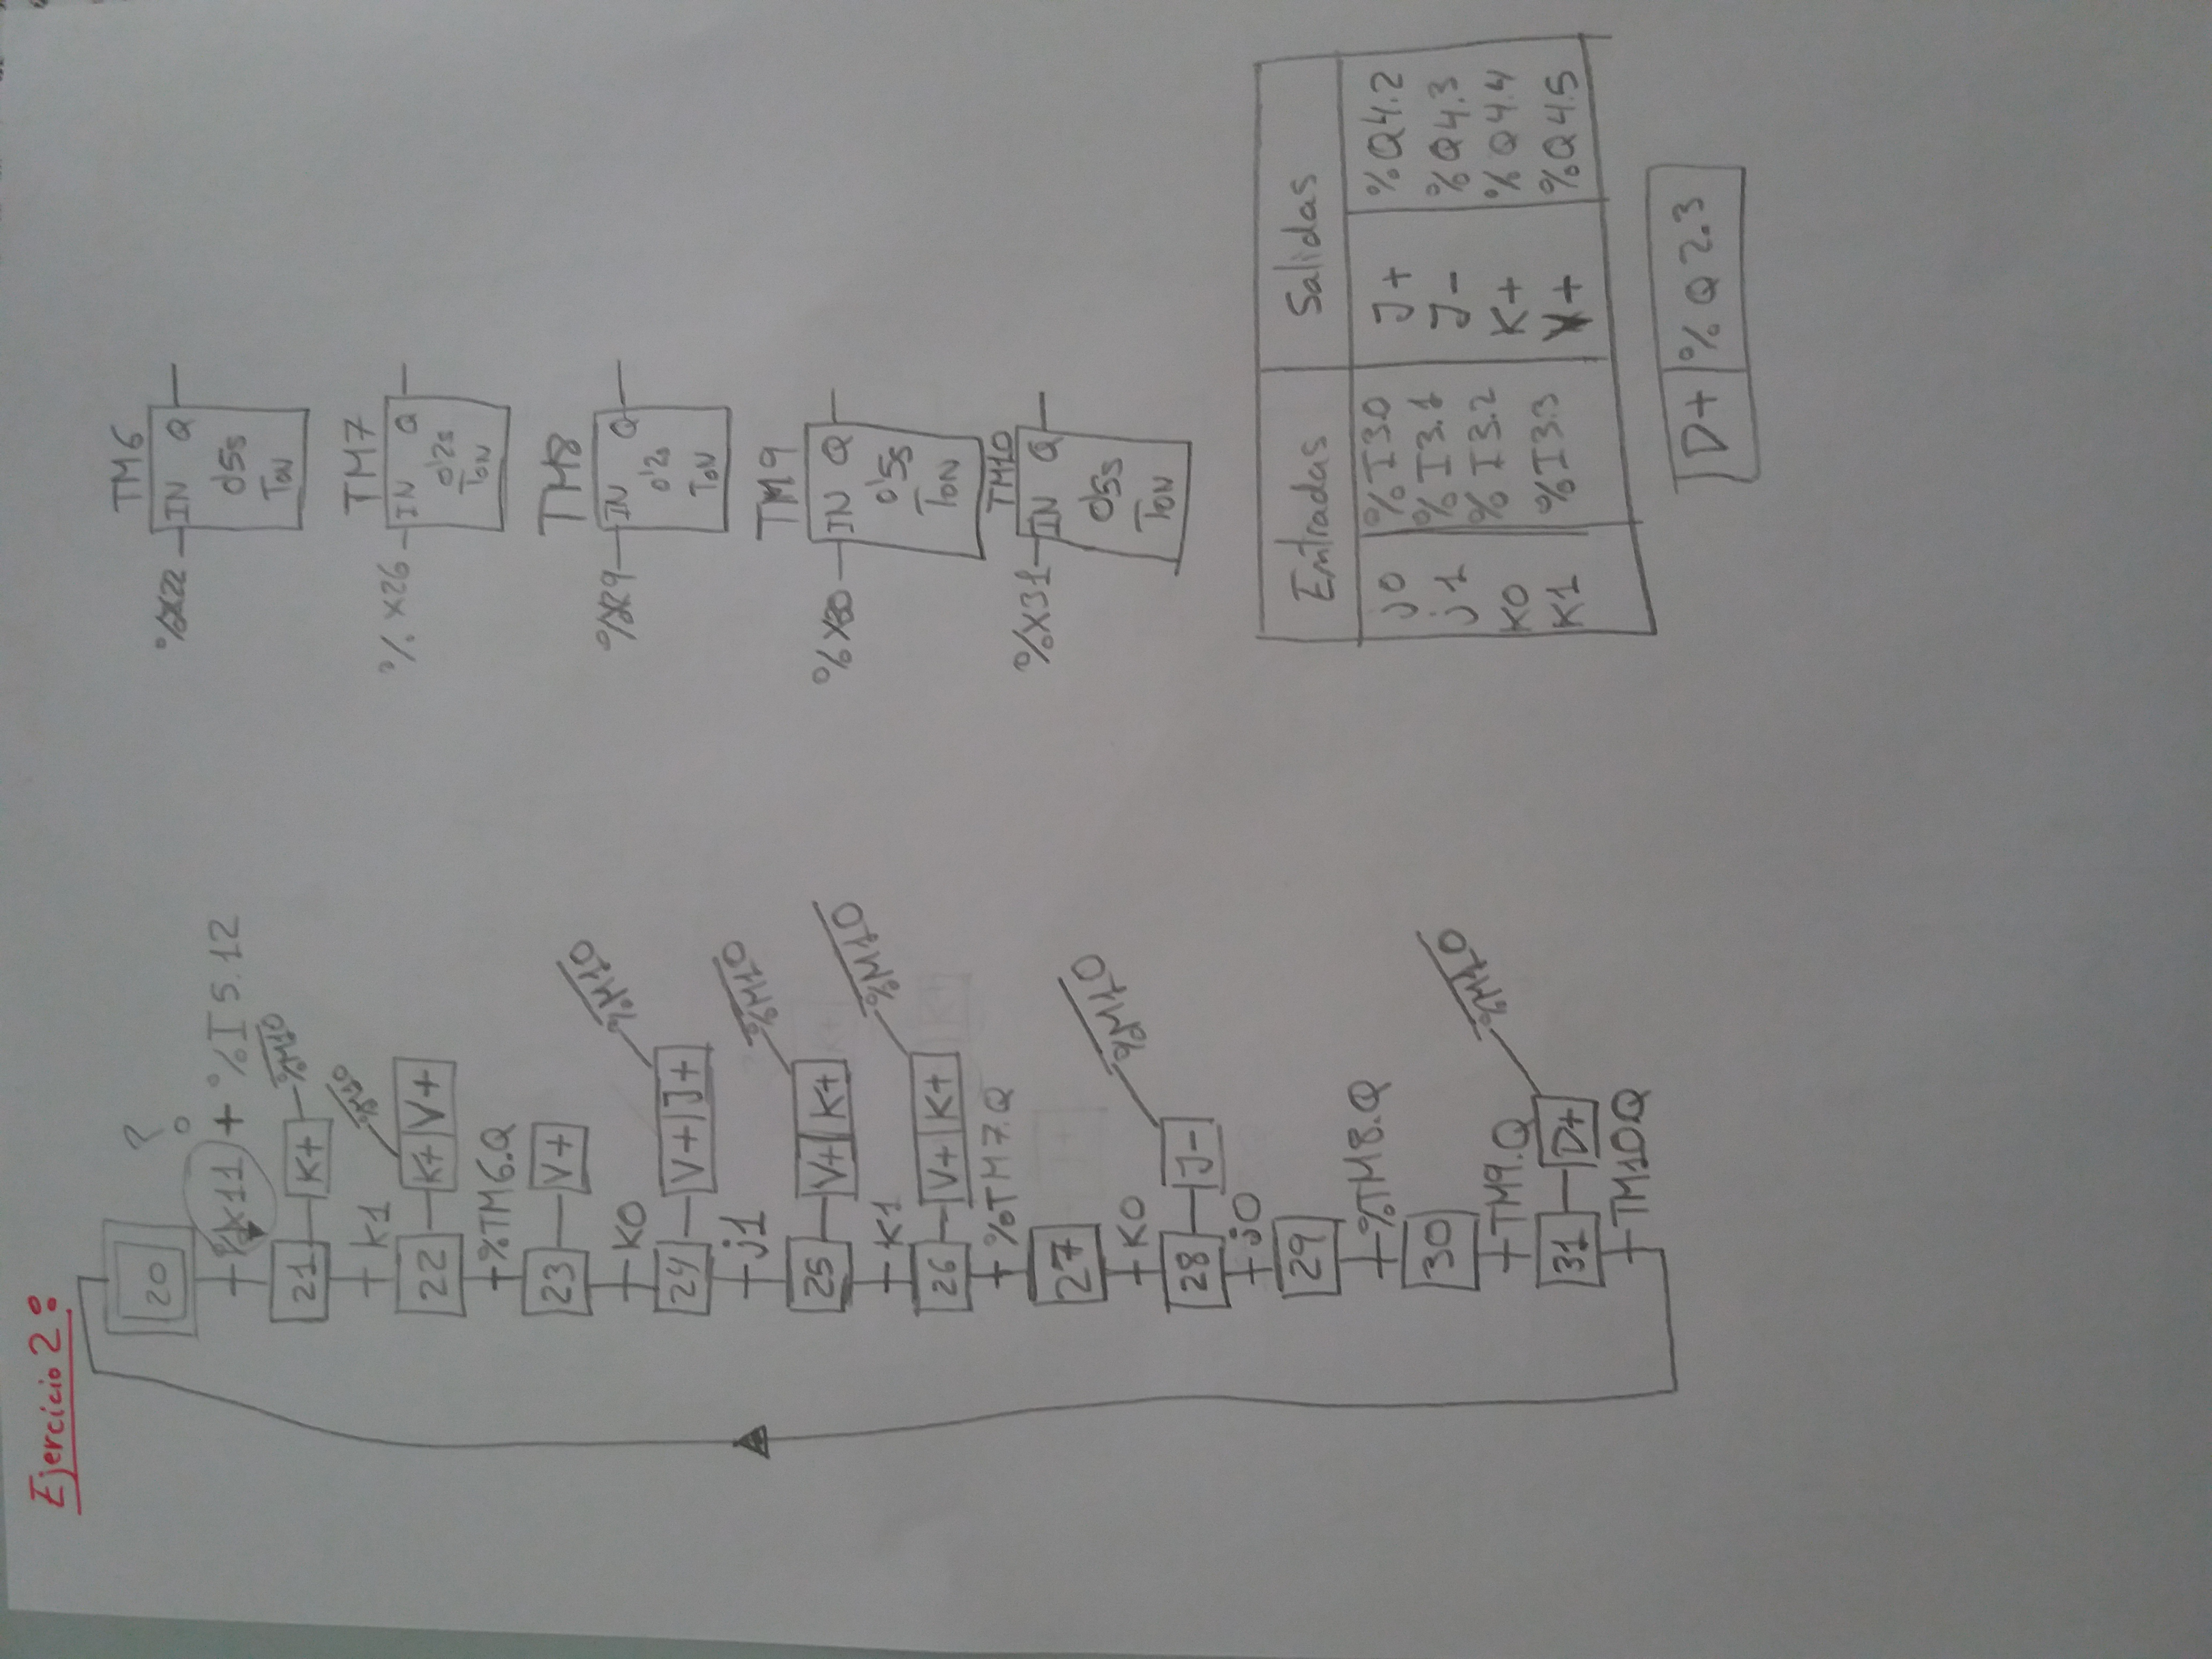 Ejercicio 2:
20
?
%X11 + %I 5.12
21 K+ %M10
K1
22 K+ V+ %M10
%TM6.Q
23 V+
K0
24 V+ J+ %M10
j1
25 V+ K+ %M10
K1
26 V+ K+ %M10
%TM7.Q
27
K0
28 J- %M10
j0
29
%TM8.Q
30
TM9.Q
31 D+ %M10
TM10.Q
TM6
%X22 IN Q
0'5s
TON
TM7
%X26 IN Q
0'2s
TON
TM8
%X29 IN Q
0'2s
TON
TM9
%X30 IN Q
0'5s
TON
TM10
%X31 IN Q
0'5s
TON
Entradas Salidas
j0 %I3.0 J+ %Q4.2
j1 %I3.1 J- %Q4.3
K0 %I3.2 K+ %Q4.4
K1 %I3.3 V+ %Q4.5
D+ %Q2.3